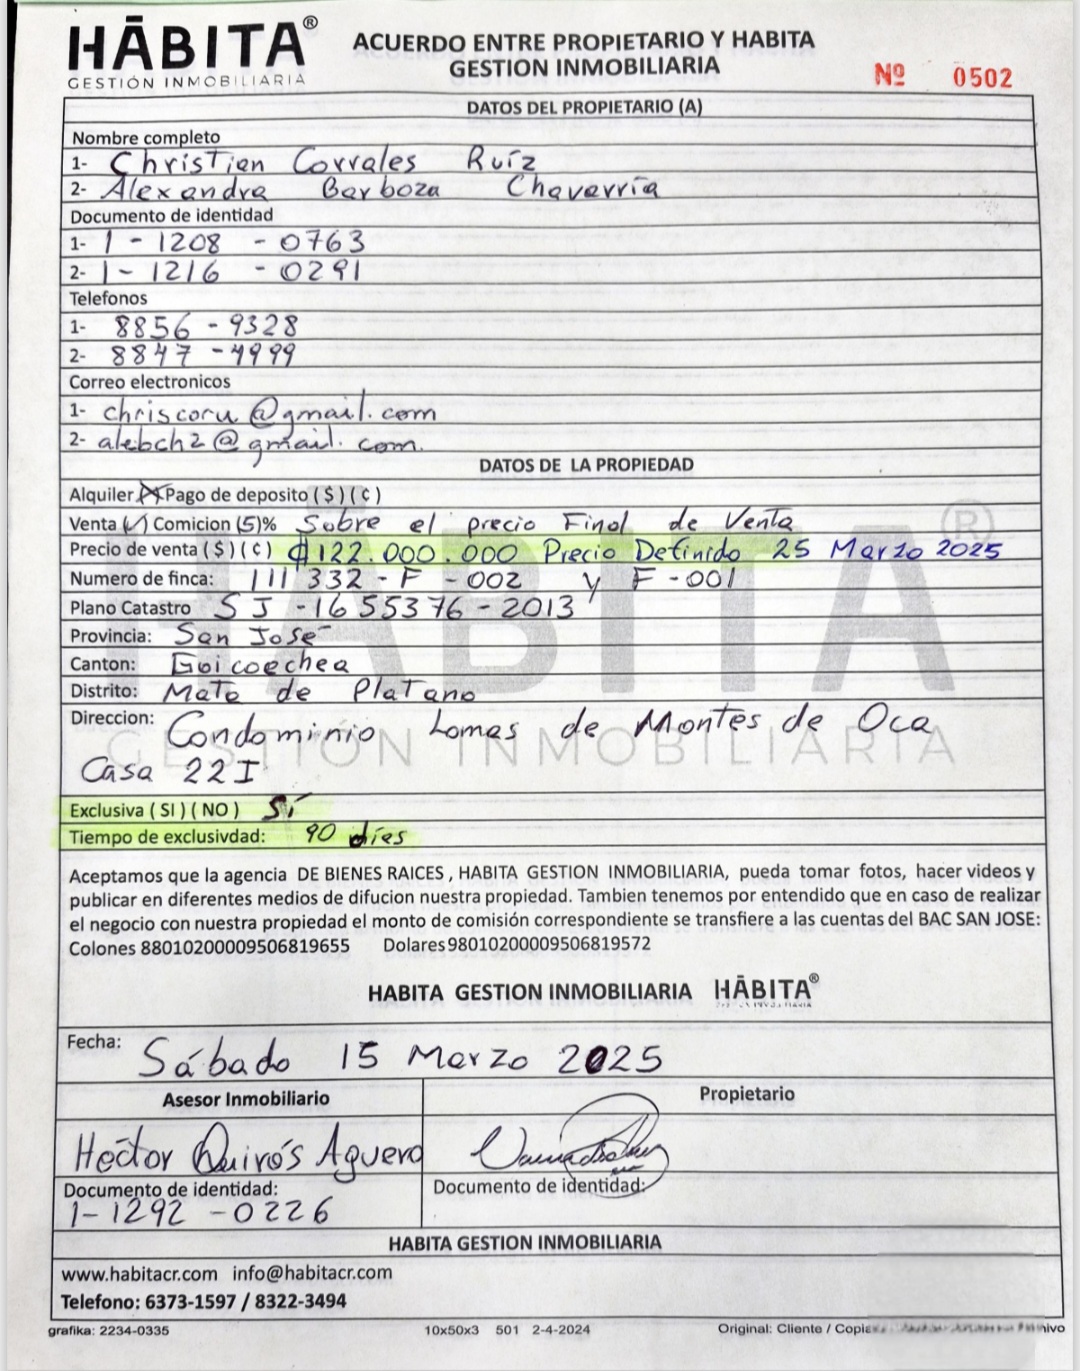 HĀBITA®
GESTIÓN INMOBILIARIA
ACUERDO ENTRE PROPIETARIO Y HABITA
GESTION INMOBILIARIA
Nº 0502
DATOS DEL PROPIETARIO (A)
Nombre completo
1- Christian Corrales Ruíz
2- Alexandra Barboza Chavarría
Documento de identidad
1- 1-1208-0763
2- 1-1216-0291
Telefonos
1- 8856-9328
2- 8847-4999
Correo electronicos
1- chriscoru@gmail.com
2- alebch2@gmail.com.
DATOS DE LA PROPIEDAD
Alquiler (X) Pago de deposito ( $ ) ( ¢ )
Venta (✓) Comicion (5)% Sobre el precio Final de Venta
Precio de venta ( $ ) ( ¢ ) ₡122.000.000 Precio Definido 25 Marzo 2025
Numero de finca: 111332-F-002 y F-001
Plano Catastro SJ-1655376-2013
Provincia: San José
Canton: Goicoechea
Distrito: Mata de Platano
Direccion: Condominio Lomas de Montes de Oca
Casa 22I
HĀBITA®
GESTIÓN INMOBILIARIA
Exclusiva ( SI ) ( NO ) Sí
Tiempo de exclusivdad: 90 días
Aceptamos que la agencia DE BIENES RAICES , HABITA GESTION INMOBILIARIA, pueda tomar fotos, hacer videos y
publicar en diferentes medios de difucion nuestra propiedad. Tambien tenemos por entendido que en caso de realizar
el negocio con nuestra propiedad el monto de comisión correspondiente se transfiere a las cuentas del BAC SAN JOSE:
Colones 88010200009506819655 Dolares 98010200009506819572
HABITA GESTION INMOBILIARIA HĀBITA®
Fecha: Sábado 15 Marzo 2025
Asesor Inmobiliario Propietario
Héctor Quirós Aguero
Documento de identidad: Documento de identidad:
1-1292-0226
HABITA GESTION INMOBILIARIA
www.habitacr.com info@habitacr.com
Telefono: 6373-1597 / 8322-3494
grafika: 2234-0335 10x50x3 501 2-4-2024 Original: Cliente / Copia